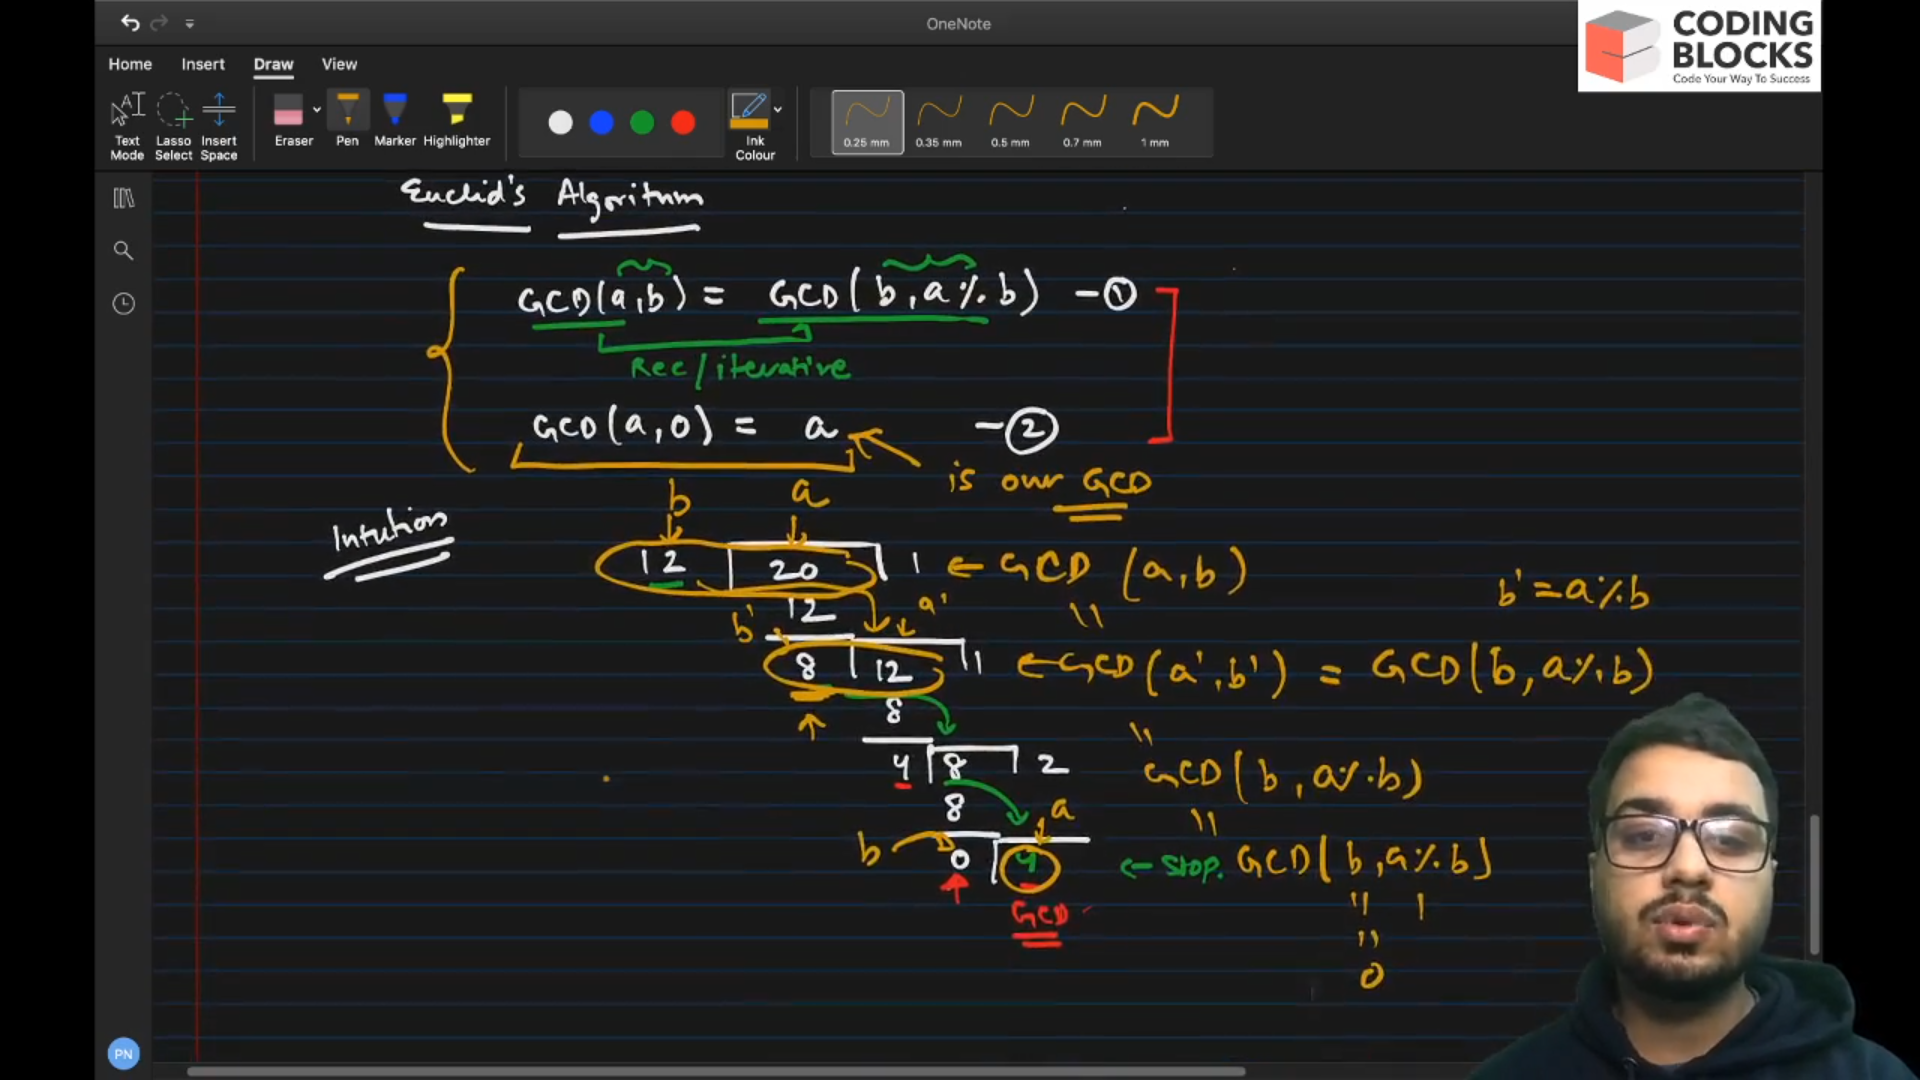 OneNote
CODING
BLOCKS
Code Your Way To Success
Home Insert Draw View
Text Mode
Lasso Select
Insert Space
Eraser
Pen
Marker
Highlighter
Ink Colour
0.25 mm
0.35 mm
0.5 mm
0.7 mm
1 mm
Euclid's Algorithm
GCD(a,b) = GCD(b, a%b) -①
Rec/iterative
GCD(a,0) = a -②
is our GCD
Intution
b a
12 20 1 ← GCD (a,b)
b' = a%b
12
b' a'
8 12 1 ← GCD(a',b') = GCD(b, a%b)
8
4 8 2 GCD(b, a%b)
8
b a
0 4 ← Stop. GCD(b, a%b)
GCD
0
PN